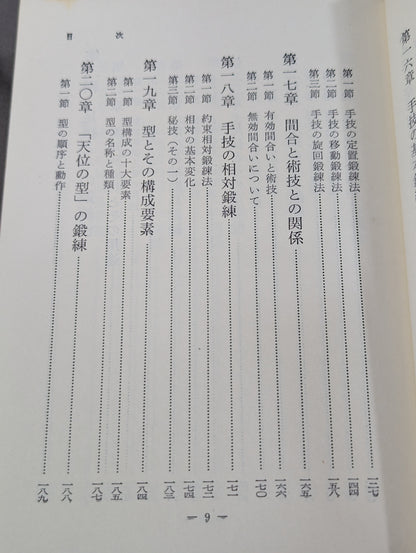 第一六章 手技
第一節 手技の定置鍛練法……一三七
第二節 手技の移動鍛練法……一四四
第三節 手技の旋回鍛練法……一五八
第一七章 間合と術技との関係……一六五
第一節 有効間合いと術技……一六六
第二節 無効間合いについて……一七〇
第一八章 手技の相対鍛練……一七一
第一節 約束相対鍛練法……一七二
第二節 相対の基本変化……一七四
第三節 秘技（その一）……一八三
第一九章 型とその構成要素……一八四
第一節 型構成の十大要素……一八五
第二節 型の名称と種類……一八七
第二〇章 「天位の型」の鍛練……一八八
第一節 型の順序と動作……一八九
目次
— 9 —